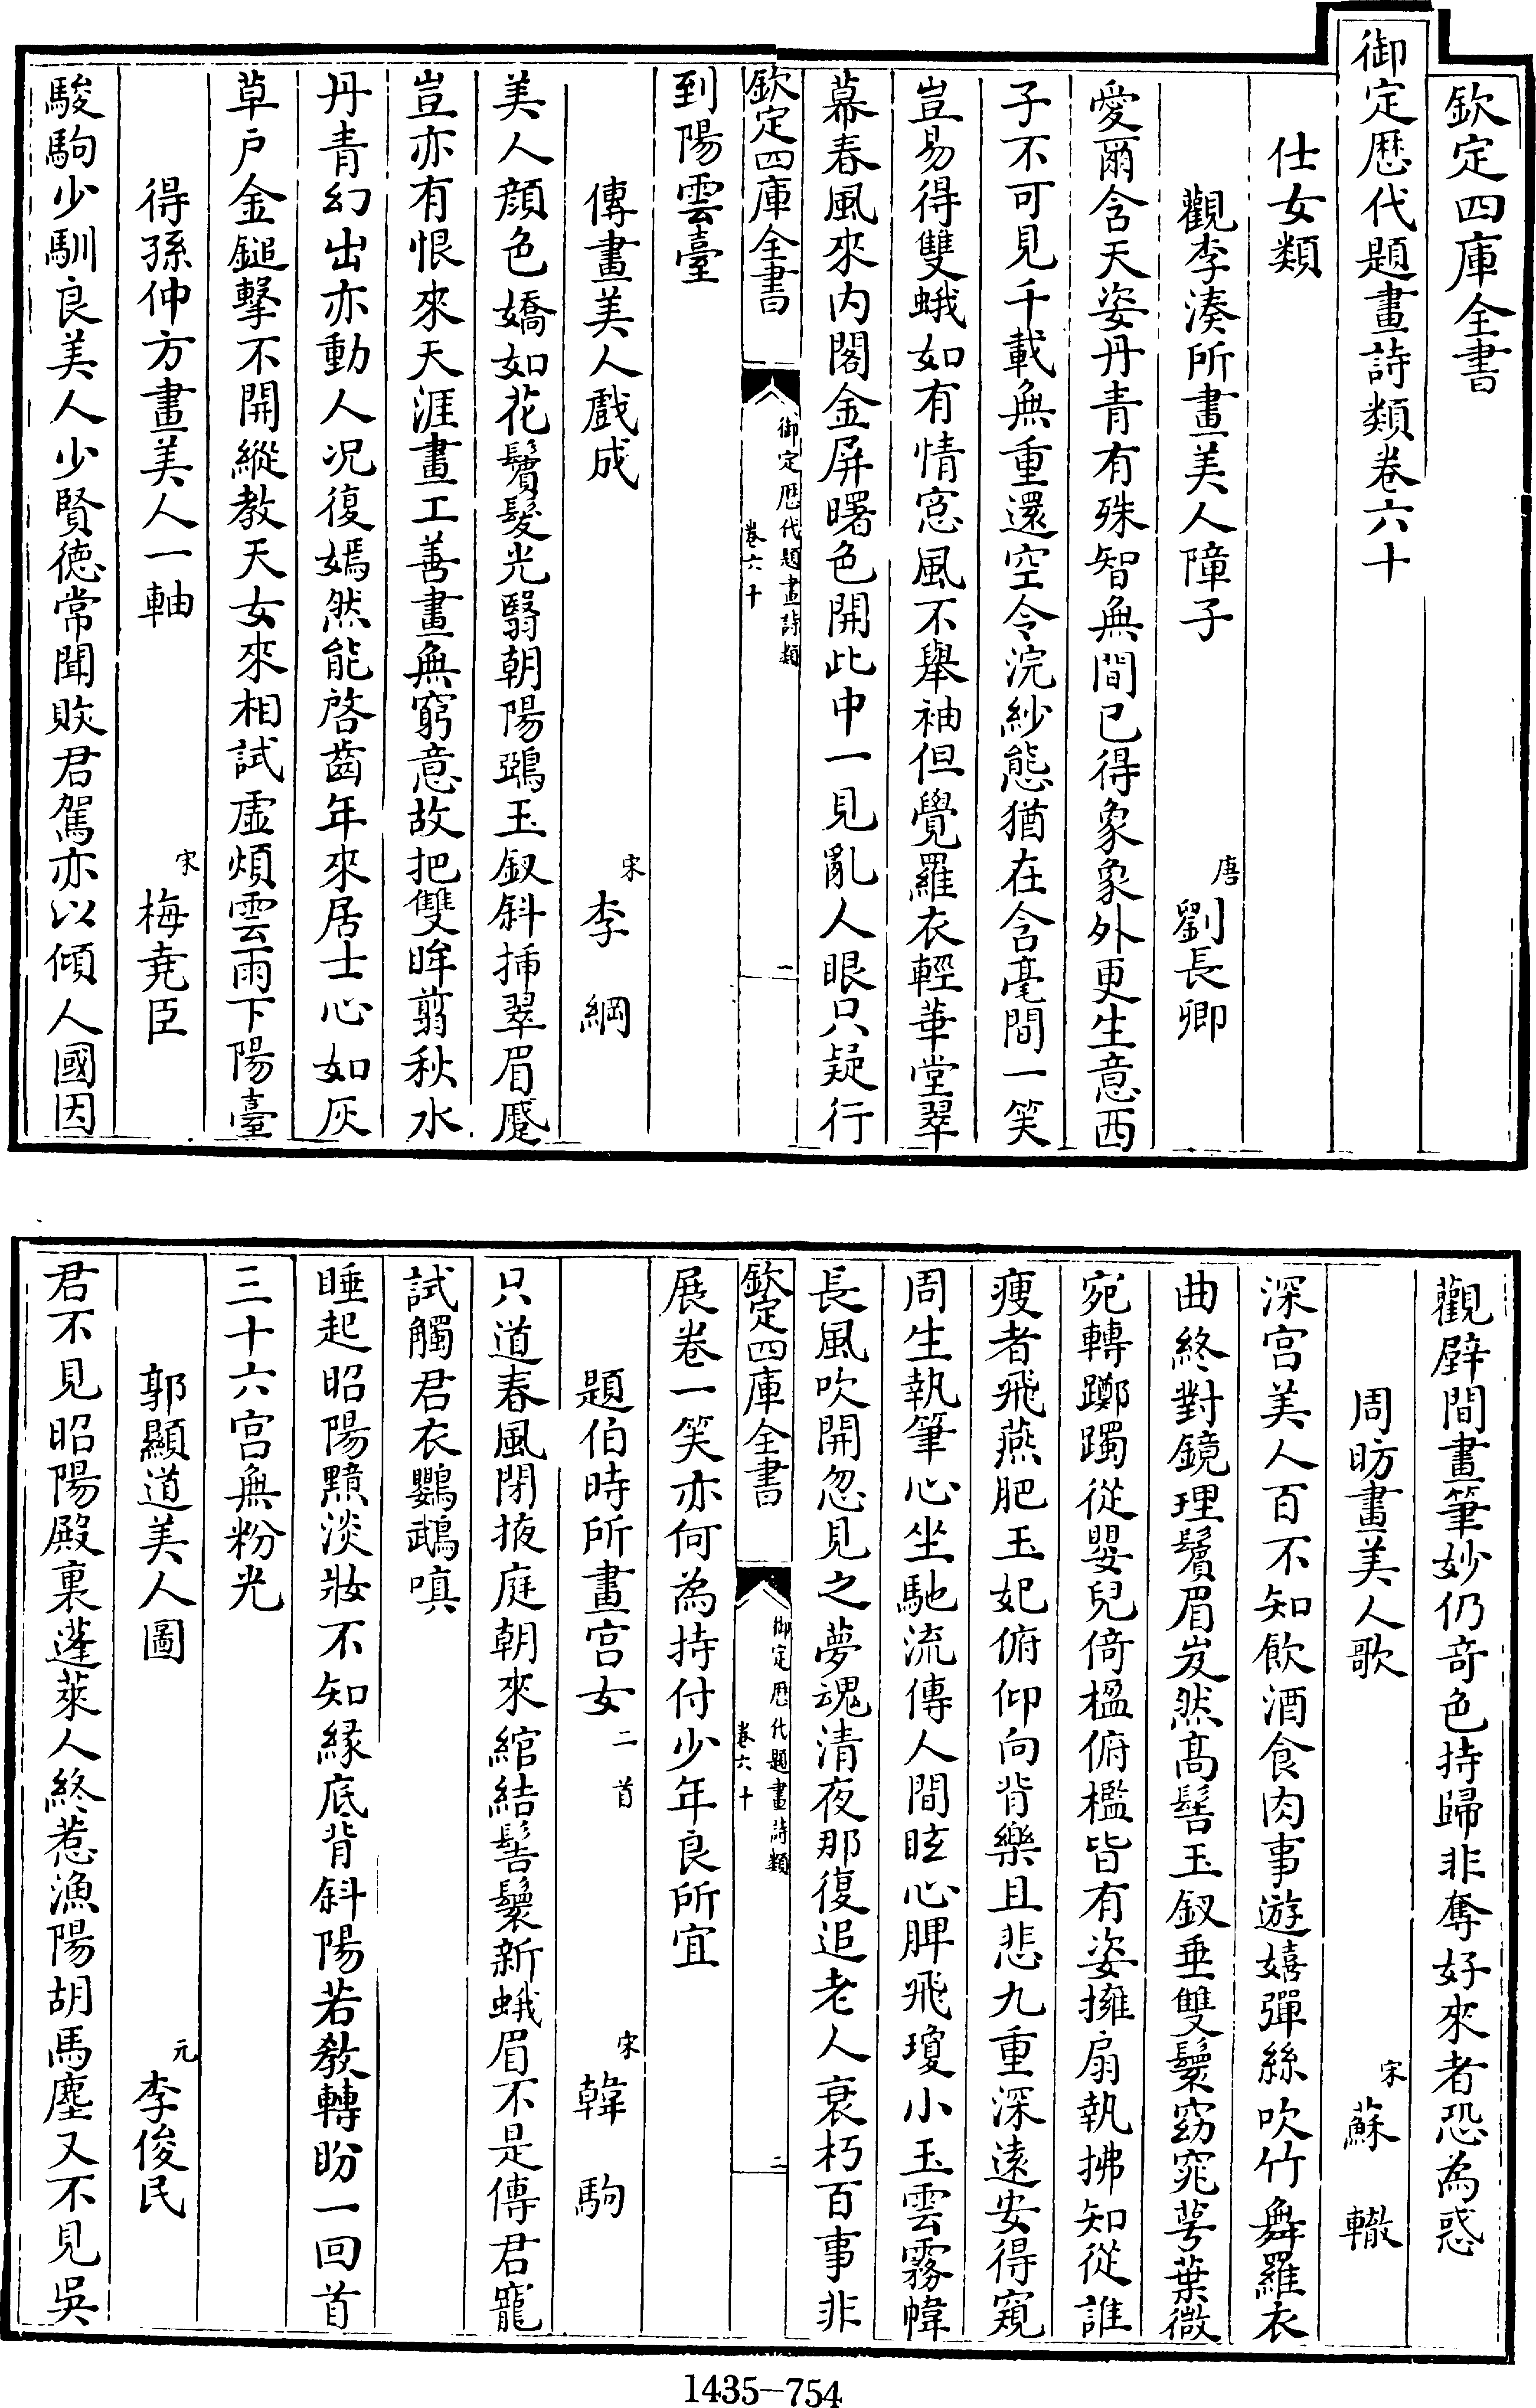 欽定四庫全書
御定歷代題畫詩類卷六十
仕女類
觀李湊所畫美人障子 唐 劉長卿
愛爾含天姿丹青有殊智無間已得象象外更生意西
子不可見千載無重還空令浣紗態猶在含毫間一笑
豈易得雙蛾如有情窓風不舉袖但覺羅衣輕華堂翠
幕春風來内閣金屏曙色開此中一見亂人眼只疑行
欽定四庫全書 御定歷代題畫詩類 卷六十 一
到陽雲臺
傳畫美人戲成 宋 李綱
美人顔色嬌如花鬢髮光翳朝陽鵶玉釵斜揷翠眉蹙
豈亦有恨來天涯畫工善畫無窮意故把雙眸翦秋水
丹青幻出亦動人况復嫣然能啓齒年來居士心如灰
草户金鎚擊不開縱教天女來相試虛煩雲雨下陽臺
得孫仲方畫美人一軸 宋 梅堯臣
駿駒少馴良美人少賢德常聞敗君駕亦以傾人國因
觀壁間畫筆妙仍竒色持歸非奪好來者恐為惑
周昉畫美人歌 宋 蘇轍
深宫美人百不知飲酒食肉事遊嬉彈絲吹竹舞羅衣
曲終對鏡理鬢眉岌然髙髻玉釵垂雙鬟窈窕萼葉微
宛轉躑躅從嬰兒倚楹俯檻皆有姿擁扇執拂知從誰
瘦者飛燕肥玉妃俯仰向背樂且悲九重深遠安得窺
周生執筆心坐馳流傳人間眩心脾飛瓊小玉雲霧幃
長風吹開忽見之夢魂清夜那復追老人衰朽百事非
欽定四庫全書 御定歷代題畫詩類 卷六十 二
展卷一笑亦何為持付少年良所宜
題伯時所畫宫女 二首 宋 韓駒
只道春風閉掖庭朝來綰結髻鬟新蛾眉不是傳君寵
試觸君衣鸚鵡嗔
睡起昭陽黯淡妝不知緣底背斜陽若教轉盼一回首
三十六宫無粉光
郭顯道美人圖 元 李俊民
君不見昭陽殿裏蓬萊人終惹漁陽胡馬塵又不見吳
1435-754